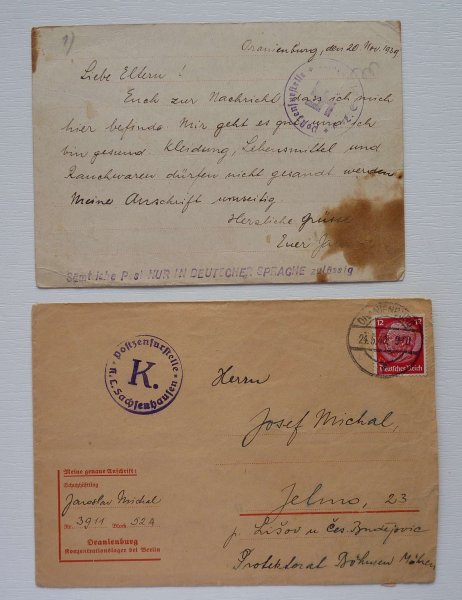 1)
Oranienburg, den 20. Nov. 1939
Liebe Eltern!
Euch zur Nachricht, dass ich mich
hier befinde. Mir geht es gut und ich
bin gesund. Kleidung, Lebensmittel und
Rauchwaren dürfen nicht gesandt werden
Meine Anschrift umseitig.
Herzliche Grüsse
Euer
Postzensurstelle
Sämtliche Post NUR IN DEUTSCHER SPRACHE zulässig
Postzensurstelle
K.
K.L. Sachsenhausen
ORANIENBURG
24.5.
12 12
Deutsches Reich
Herrn
Josef Michal,
Jelmo, 23
p. Lišov u Čes. Budějovic
Protektorat Böhmen Mähren
Meine genaue Anschrift:
Schutzhäftling
Jaroslav Michal
Nr. 3911 Block 52A
Oranienburg
Konzentrationslager bei Berlin